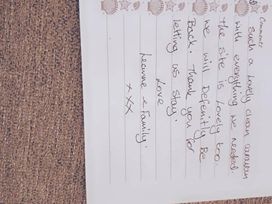 Such a lovely clean caravan
with everything we needed.
The site is lovely too.
we will Defenitly Be
Back. Thank you for
letting us stay.
Love
Leanne & Family.
xxx